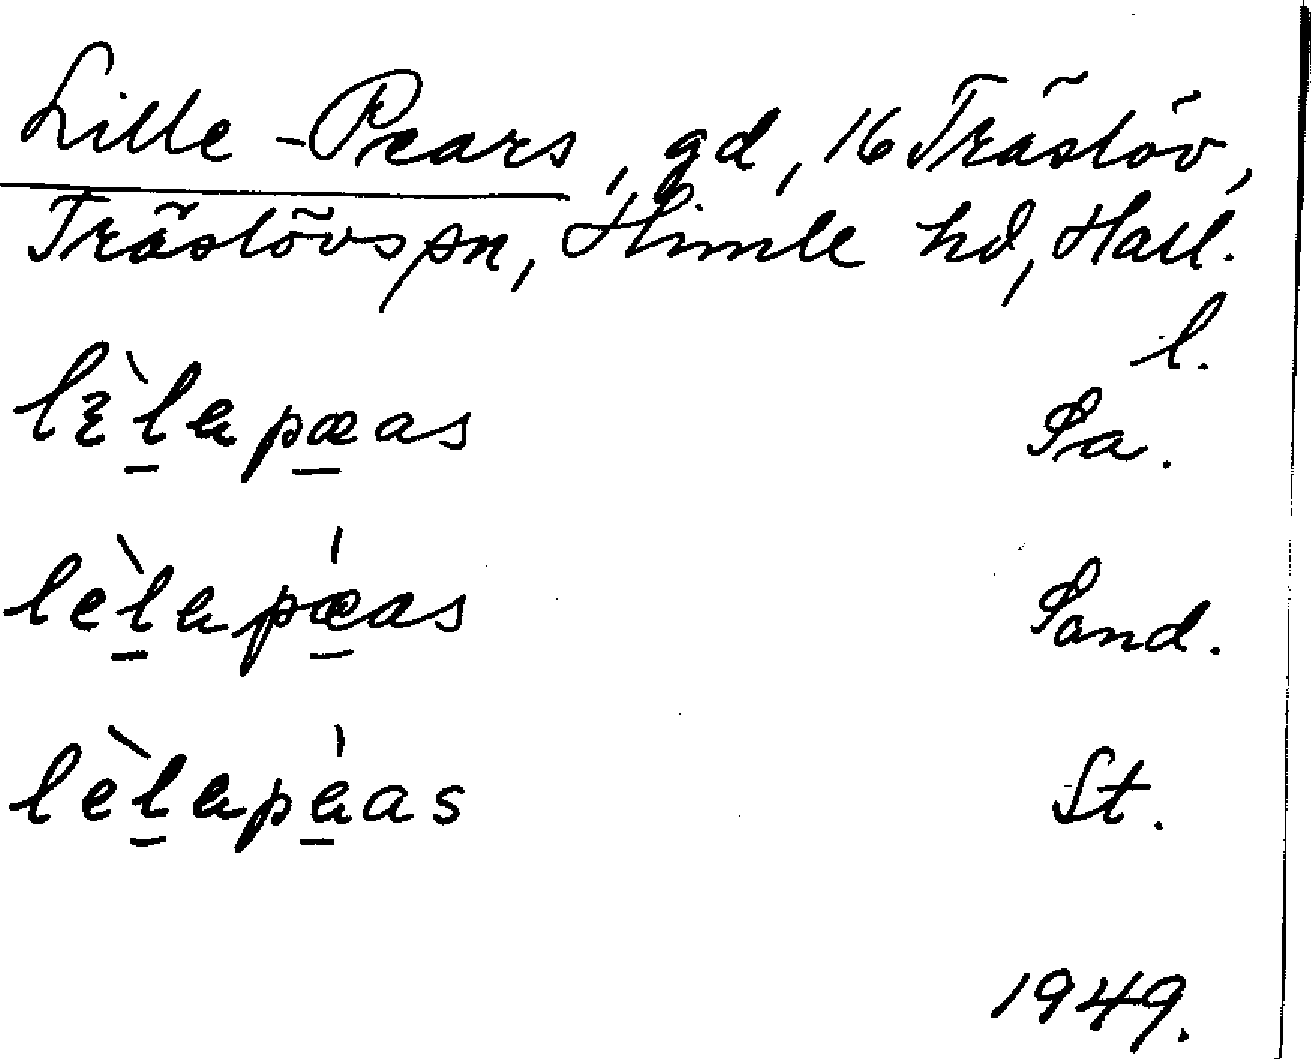 Lille-Pears, gd, 16 Träslöv,
Träslövs sn, Himle hd, Hall.
l.
lɛ̀lapæas Sa.
lèlapǽas Sand.
lèlapáas St.
1949.